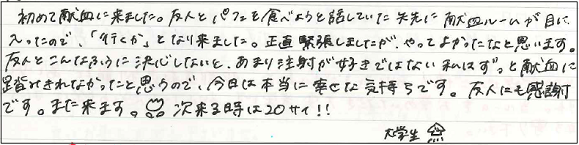 初めて献血に来ました。友人とパフェを食べようと話していた矢先に献血ルームが目に
入ったので、「行くか」となり来ました。正直緊張しましたが、やってよかったなと思います。
友人とこんなふうに決心しないと、あまり注射が好きではない私はずっと献血に
踏みきれなかったと思うので、今日は本当に幸せな気持ちです。友人にも感謝
です。また来ます。次来る時は20サイ!!
大学生